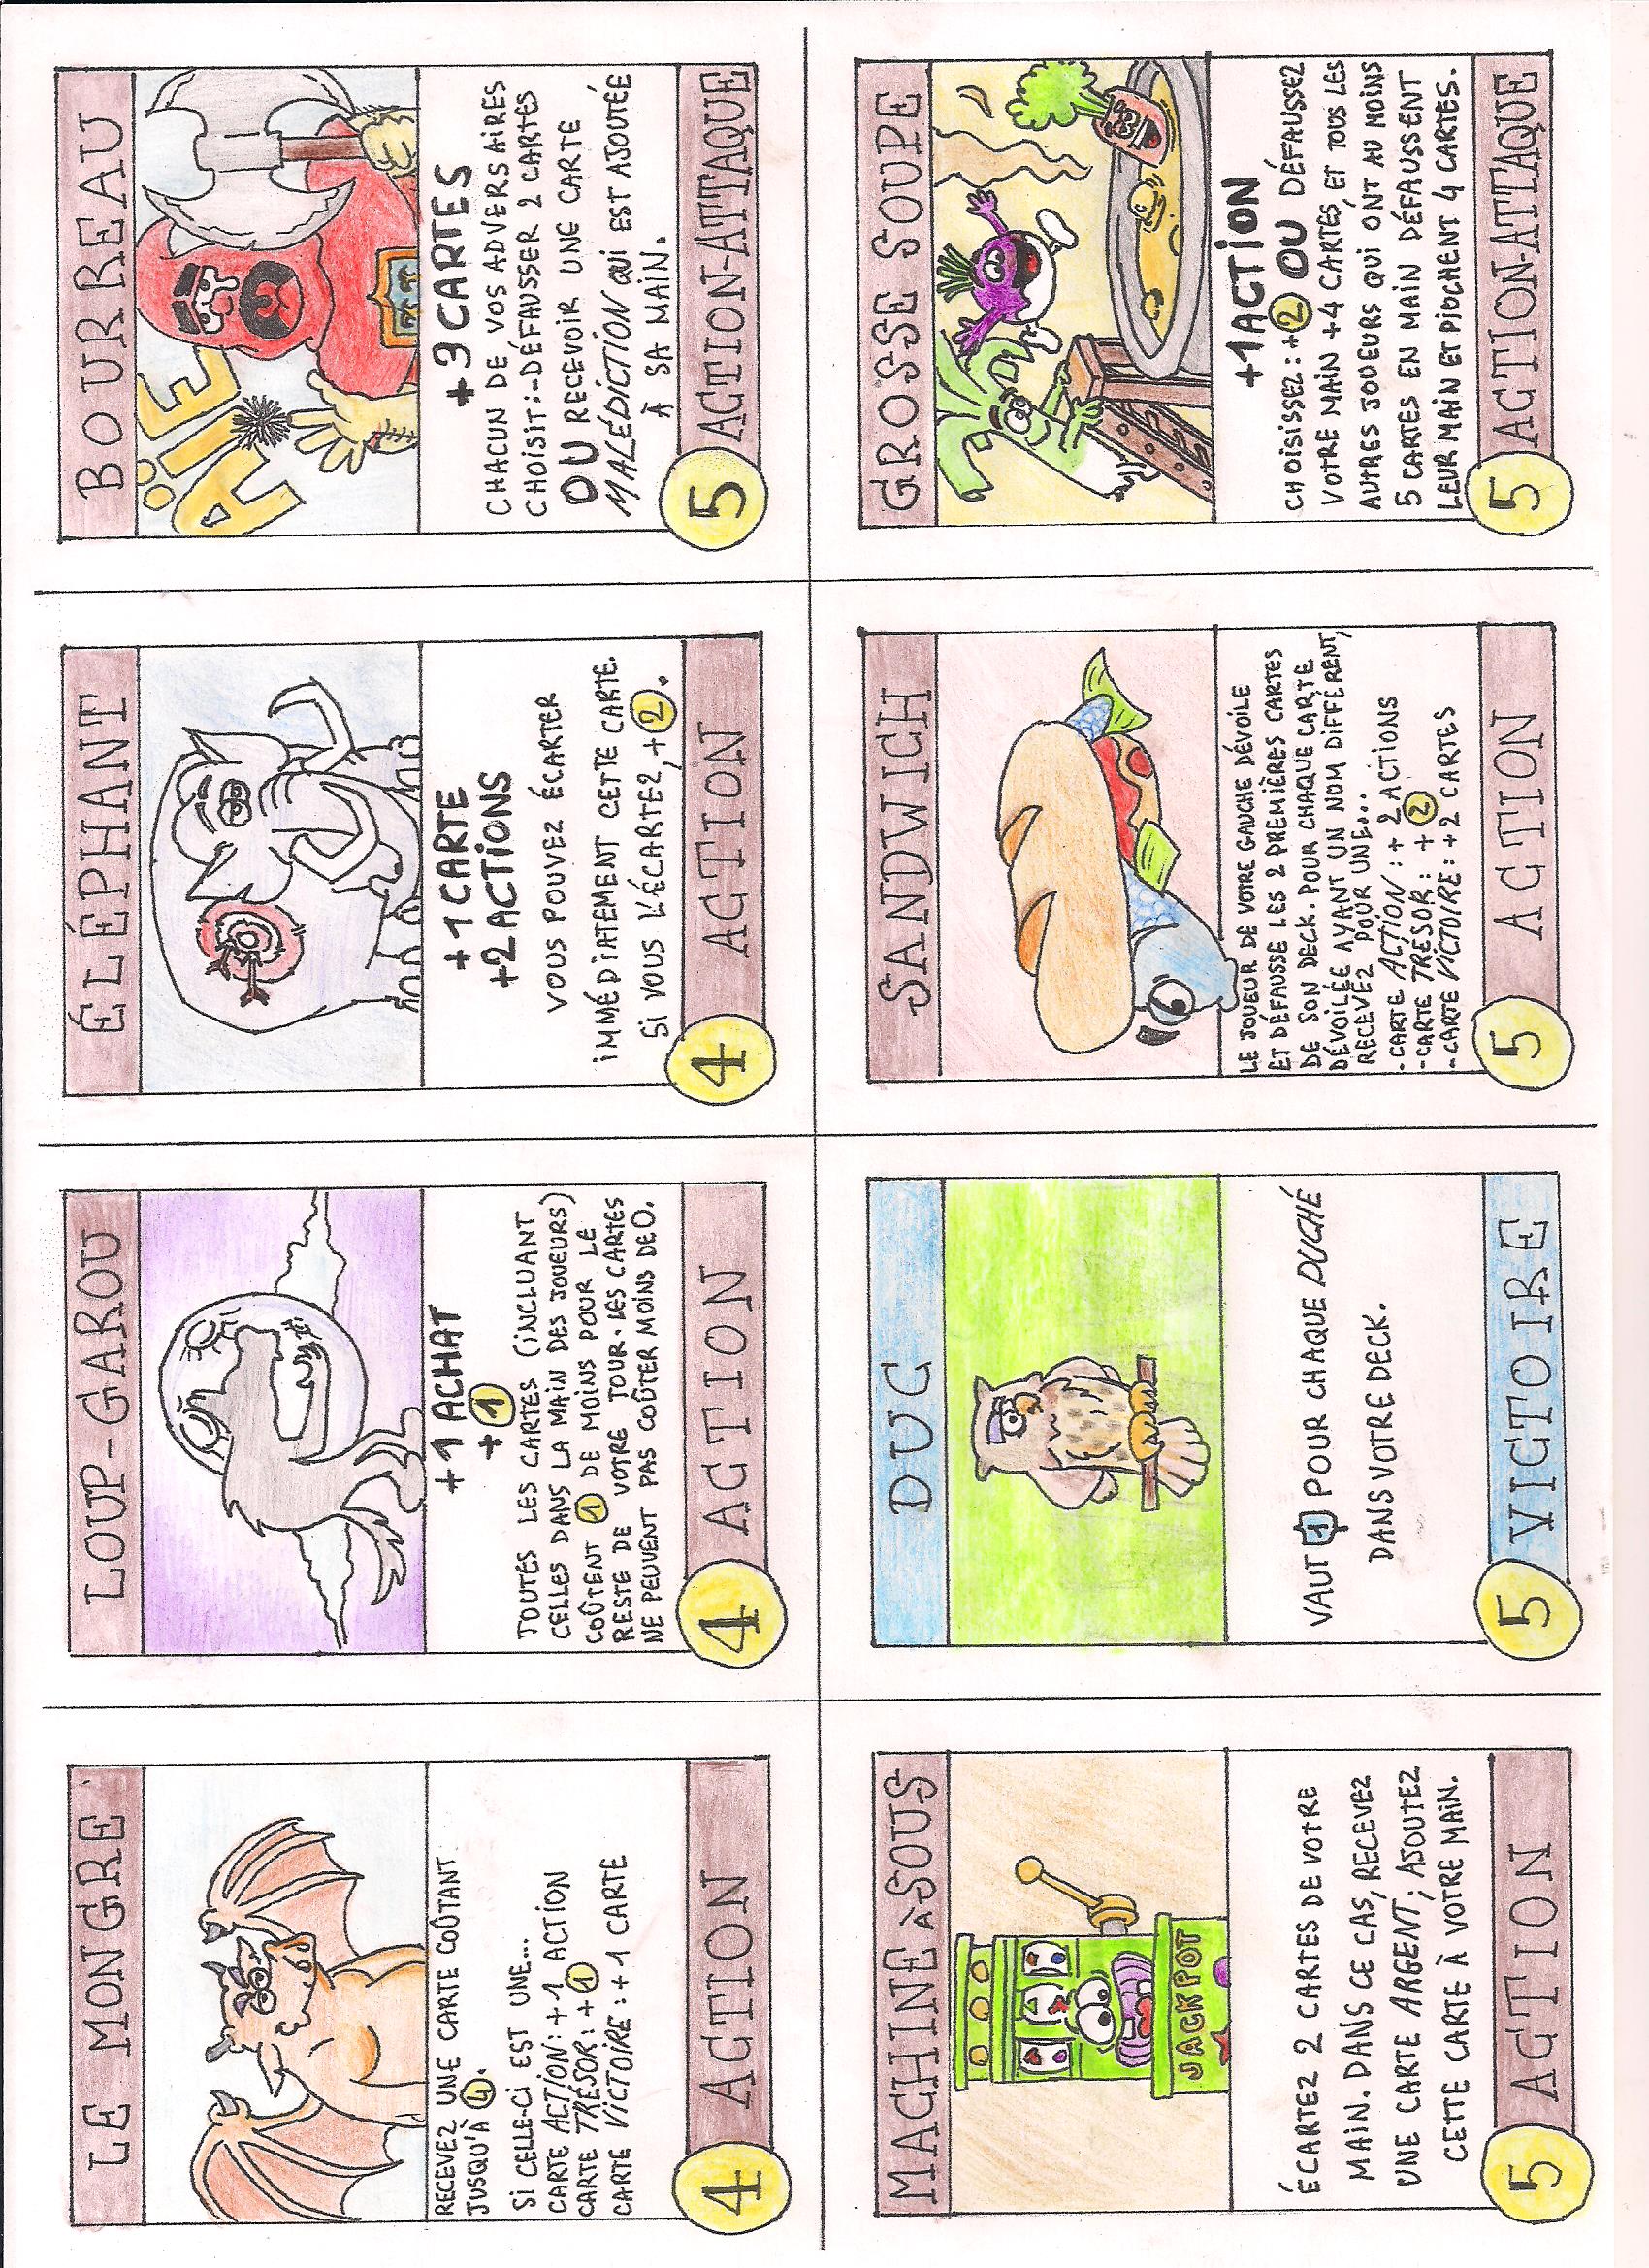 LE MONGRE
RECEVEZ UNE CARTE COÛTANT
JUSQU'À 4.
SI CELLE-CI EST UNE...
CARTE ACTION: +1 ACTION
CARTE TRÉSOR: +1
CARTE VICTOIRE: +1 CARTE
4 ACTION
LOUP-GAROU
+1 ACHAT
+1
TOUTES LES CARTES (INCLUANT
CELLES DANS LA MAIN DES JOUEURS)
COÛTENT 1 DE MOINS POUR LE
RESTE DE VOTRE TOUR. LES CARTES
NE PEUVENT PAS COÛTER MOINS DE 0.
4 ACTION
ÉLÉPHANT
+1 CARTE
+2 ACTIONS
VOUS POUVEZ ÉCARTER
IMMÉDIATEMENT CETTE CARTE.
SI VOUS L'ÉCARTEZ, +2.
4 ACTION
BOURREAU
AÏE
+3 CARTES
CHACUN DE VOS ADVERSAIRES
CHOISIT:-DÉFAUSSER 2 CARTES
OU RECEVOIR UNE CARTE
MALÉDICTION QUI EST AJOUTÉE
À SA MAIN.
5 ACTION-ATTAQUE
MACHINE À SOUS
JACKPOT
ÉCARTEZ 2 CARTES DE VOTRE
MAIN. DANS CE CAS, RECEVEZ
UNE CARTE ARGENT; AJOUTEZ
CETTE CARTE À VOTRE MAIN.
5 ACTION
DUC
VAUT 1 POUR CHAQUE DUCHÉ
DANS VOTRE DECK.
5 VICTOIRE
SANDWICH
LE JOUEUR DE VOTRE GAUCHE DÉVOILE
ET DÉFAUSSE LES 2 PREMIÈRES CARTES
DE SON DECK. POUR CHAQUE CARTE
DÉVOILÉE AYANT UN NOM DIFFÉRENT,
RECEVEZ POUR UNE...
-CARTE ACTION: +2 ACTIONS
-CARTE TRÉSOR: +2
-CARTE VICTOIRE: +2 CARTES
5 ACTION
GROSSE SOUPE
+1 ACTION
CHOISISSEZ: +2 OU DÉFAUSSEZ
VOTRE MAIN +4 CARTES ET TOUS LES
AUTRES JOUEURS QUI ONT AU MOINS
5 CARTES EN MAIN DÉFAUSSENT
LEUR MAIN ET PIOCHENT 4 CARTES.
5 ACTION-ATTAQUE